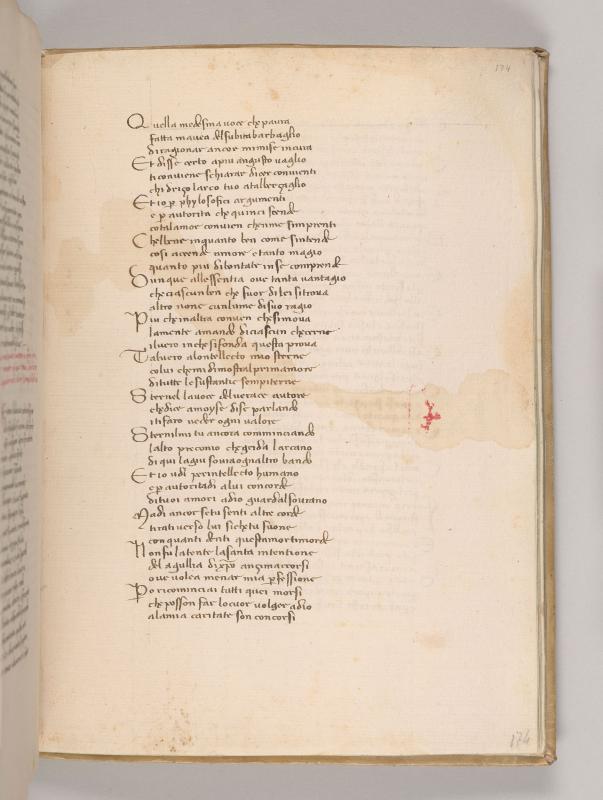 174
Quella medesma voce che paura
fatta mavea del subita barbaglio
di ragionar ancor mimise in cura
Et disse certo apiu angusto vaglio
ti conviene schiarar dicer convienti
chi driço larco tuo atal berçaglio
Et io per phylosofici argumenti
e per autorita che quinci scende
cotal amor convien che in me simprenti
Chel bene inquanto ben come sintende
cosi accende amore e tanto magio
quanto piu di bontate in se comprende
Dunque allessentia ove tanta vantagio
che ciascun ben che fuor di lei si trova
altro non e cun lume di suo ragio
Piu che in altra conven che si mova
la mente amando di ciascun che cerne
il vero in che si fonda questa prova
Tal vero a lontellecto mio sterne
colui che mi dimostra il primamore
di tutte le sustantie sempiterne
Sternel la voce del verace autore
che dice a moyse di se parlando
io ti faro veder ogni valore
Sternilmi tu ancora comminciando
lalto preconio che grida larcano
di qui la giu sovra ognaltro bando
Et io udi per intellecto humano
e per autoritadi a lui concorde
di tuoi amori a dio guarda il sovrano
Madi ancor se tu senti altre corde
tirarti verso lui si che tu suone
con quanti denti questamor ti morde
Non fu latente la santa intentione
del agullia di xpo ançi maccorsi
ove volea menar mia professione
Po ricominciai tutti quei morsi
che posson far lo cuor volger a dio
a la mia caritate son concorsi
174